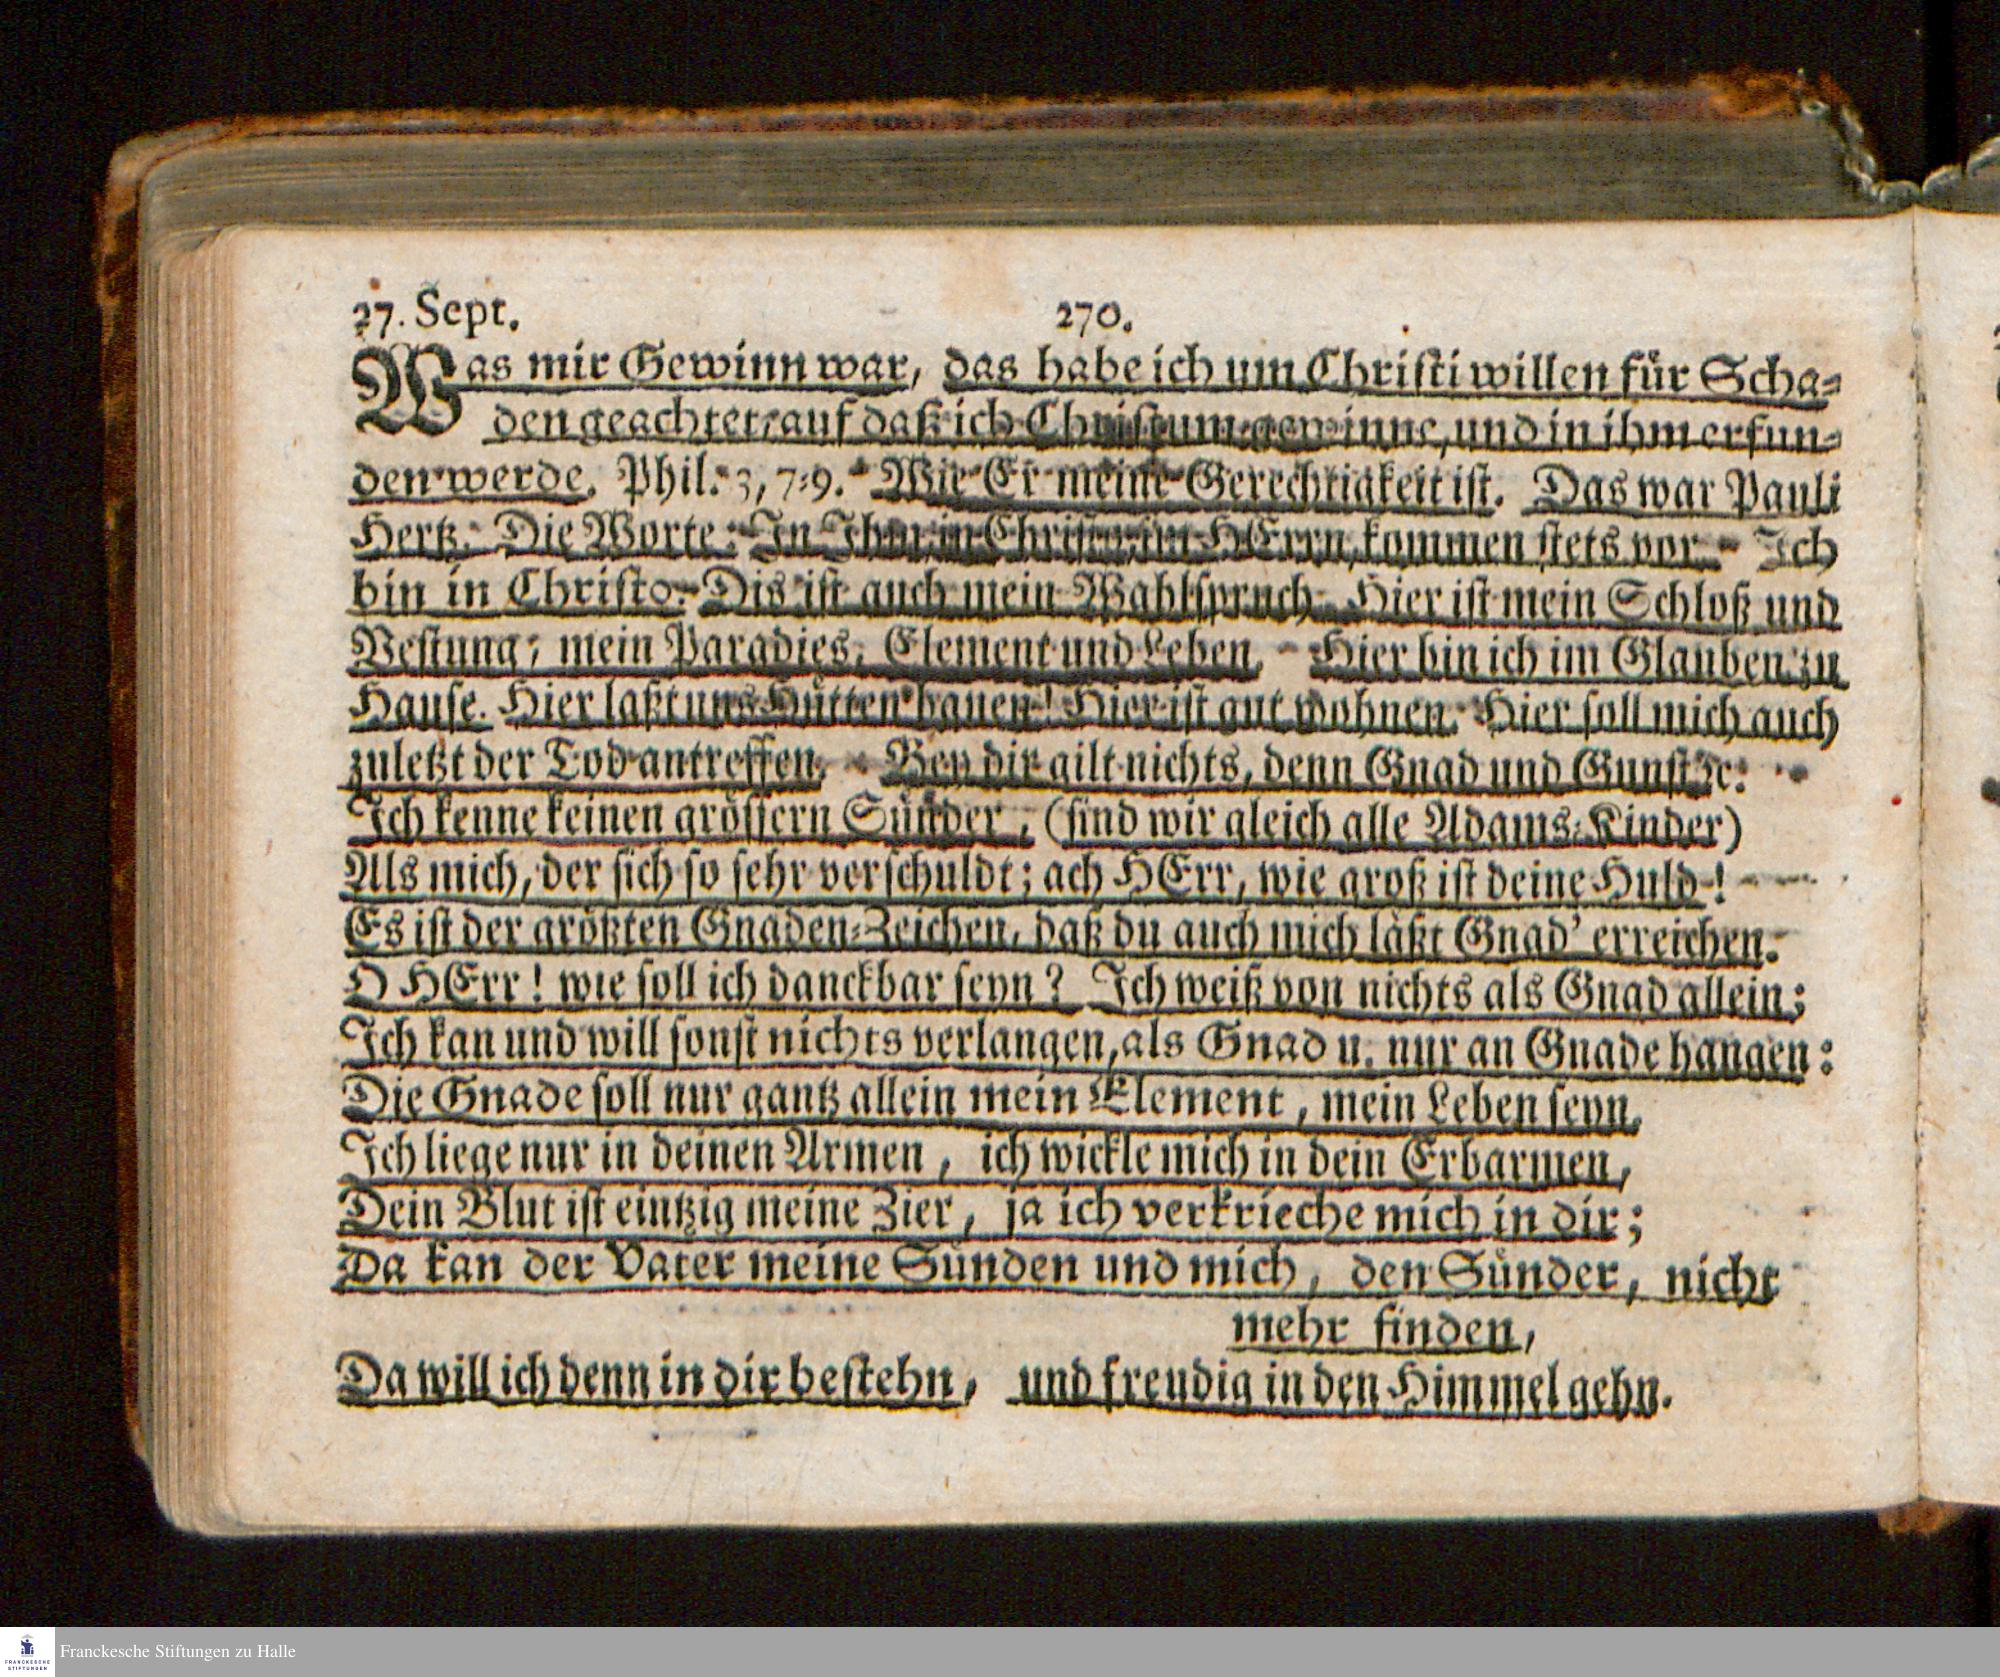 27. Sept. 270.
Was mir Gewinn war, das habe ich um Christi willen für Scha⸗
den geachtet, auf daß ich Christum gewinne, und in ihm erfun⸗
den werde. Phil. 3, 7⸗9. Wie Er meine Gerechtigkeit ist. Das war Pauli
Hertz. Die Worte: In Ihm, in Christo, im HErrn, kommen stets vor. Ich
bin in Christo. Dis ist auch mein Wahlspruch. Hier ist mein Schloß und
Vestung, mein Paradies, Element und Leben. Hier bin ich im Glauben zu
Hause. Hier laßt uns Hütten bauen! Hier ist gut wohnen. Hier soll mich auch
zuletzt der Tod antreffen. Bey dir gilt nichts, denn Gnad und Gunst ꝛc.
Ich kenne keinen grössern Sünder, (sind wir gleich alle Adams⸗Kinder)
Als mich, der sich so sehr verschuldt; ach HErr, wie groß ist deine Huld!
Es ist der größten Gnaden⸗Zeichen, daß du auch mich läßt Gnad' erreichen.
O HErr! wie soll ich danckbar seyn? Ich weiß von nichts als Gnad allein;
Ich kan und will sonst nichts verlangen, als Gnad u. nur an Gnade hangen:
Die Gnade soll nur gantz allein mein Element, mein Leben seyn,
Ich liege nur in deinen Armen, ich wickle mich in dein Erbarmen,
Dein Blut ist eintzig meine Zier, ja ich verkrieche mich in dir;
Da kan der Vater meine Sünden und mich, den Sünder, nicht
mehr finden,
Da will ich denn in dir bestehn, und freudig in den Himmel gehn.
FRANCKESCHE
STIFTUNGEN
Franckesche Stiftungen zu Halle